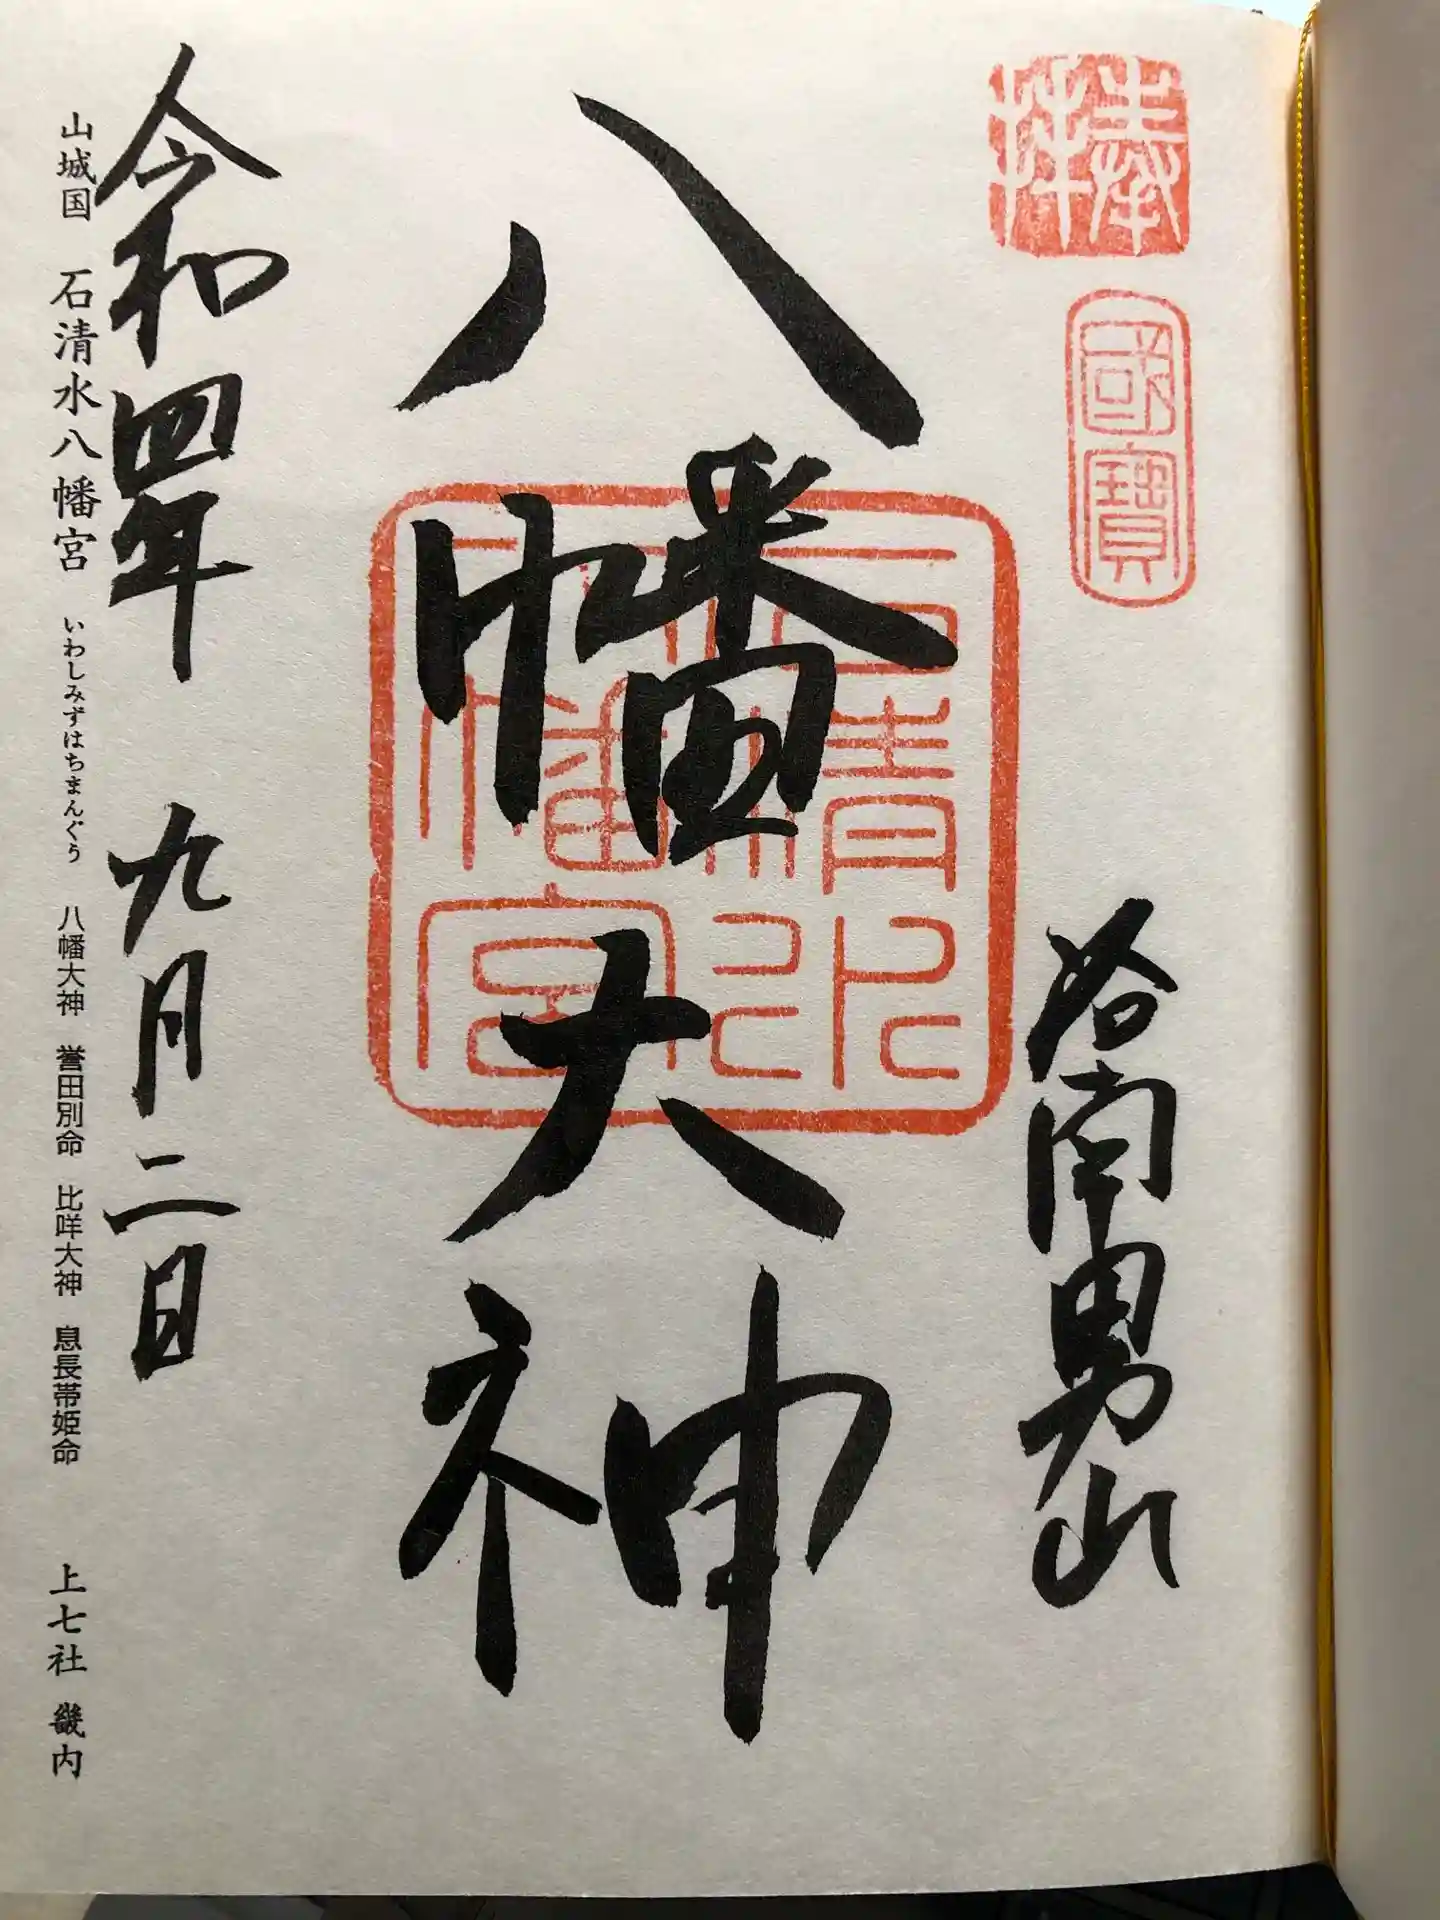 奉拝
國寶
洛南男山
八幡大神
令和四年 九月二日
山城国 石清水八幡宮 いわしみずはちまんぐう 八幡大神 誉田別命 比咩大神 息長帯姫命 上七社 畿内